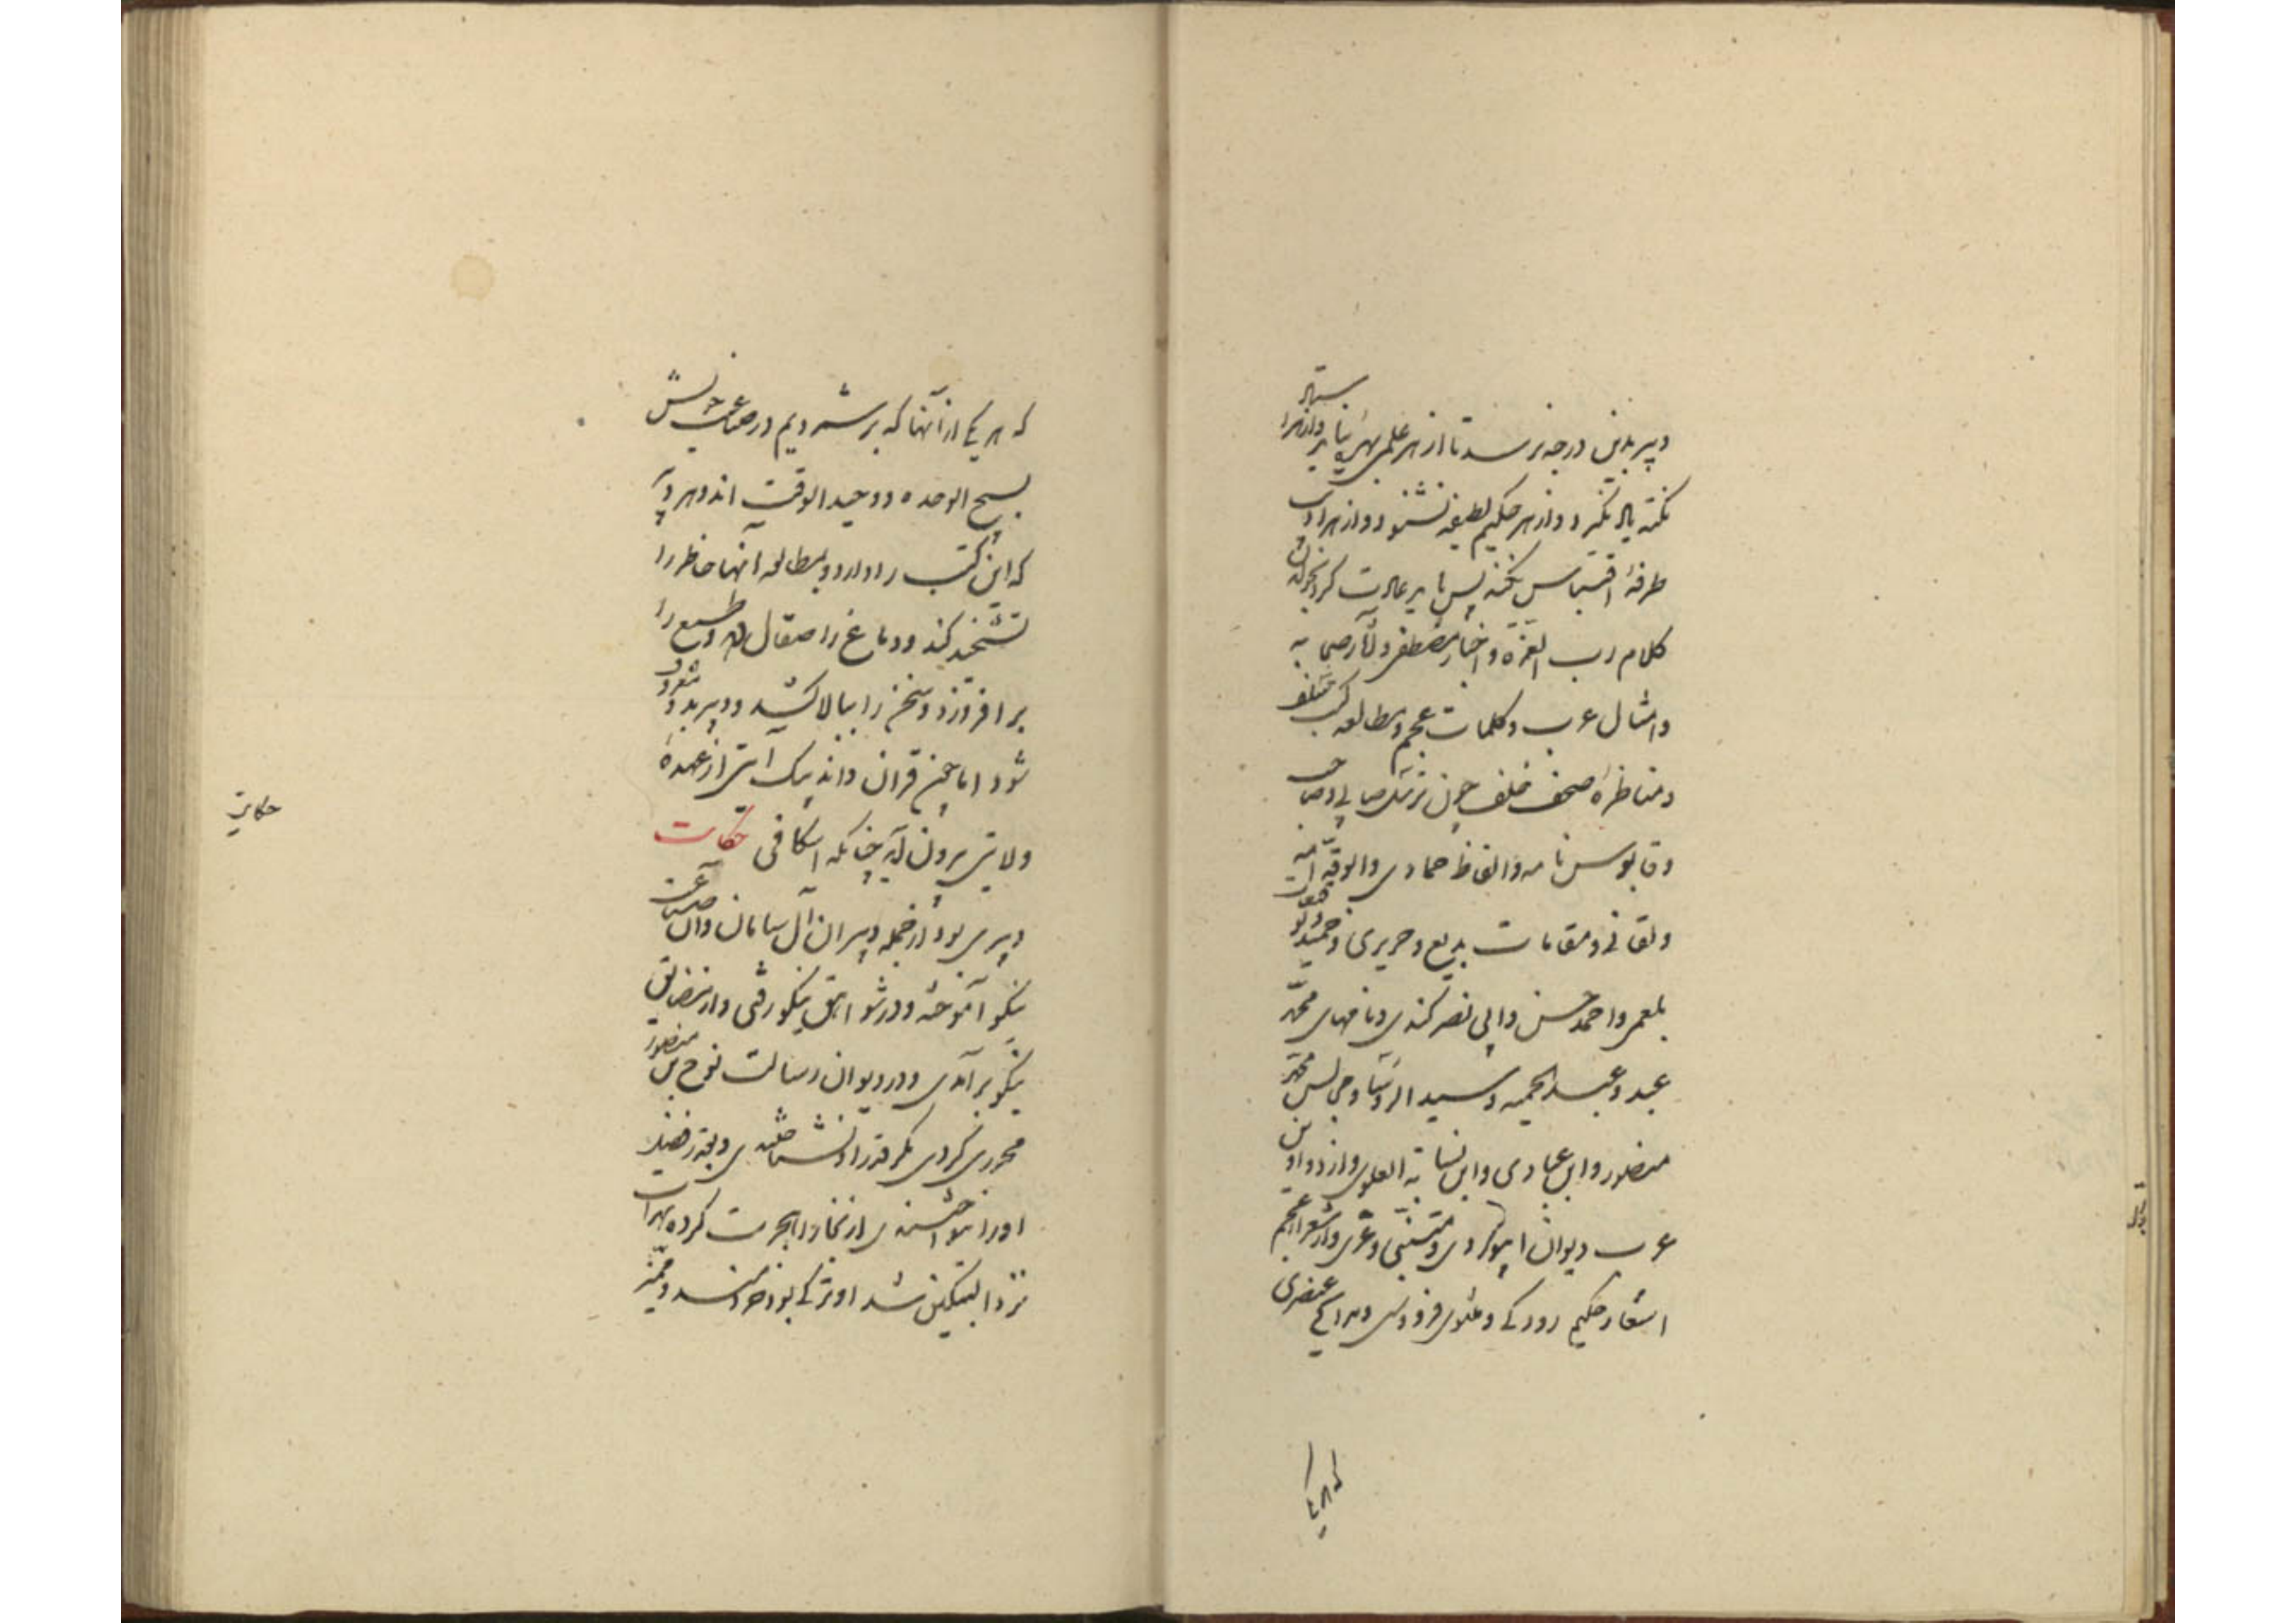 دبیر بدین درجه نرسد تا از هر علمی بهره نیابد و از هر استاد
نکته یاد نگیرد و از هر حکیم لطیفه نشنود و از هر ادیب
طرفه اقتباس نکند پس باید عادت کرد بخواندن
کلام رب العزة و اخبار مصطفی و آثار صحابه
و امثال عرب و کلمات عجم و مطالعه کتب سلف
و مناظرهٔ صحف خلف چون ترسل صابی و صاحب
و قابوس نامه و الفاظ حمادی و
و مقامات بدیع و حریری و حمیدی و
بلعمی و احمد حسن و ابی نصر کندری و نامهای محمد
عبده و عبد الحمید و سید الرؤسا و مجالس محمد
منصور و ابن عبادی و ابن نسابة العلوی و از دواوین
عرب دیوان ابیوردی و متنبی و غزی و از شعر عجم
اشعار حکیم رودکی و مثنوی فردوسی و مدایح عنصری
که هر یک
که هر یکی از آنها که بر شمردیم در صناعت خویش
نسیج الوحده و وحید الوقت اند و هر دبیر
که این کتب را دارد و بمطالعه آنها خاطر را
تشحیذ کند و دماغ را صقال دهد و طبع را
بر افروزد و سخن را ببالا کشد و دبیر بدو معروف
شود اما چون قران داند بیک آیتی از عهدهٔ
ولایتی بیرون آید چنانکه اسکافی حکایت
دبیری بود از جمله دبیران آل سامان و آن صناعت
نیکو آموخته و در شواهق نیکو رفتی و از مضایق
نیکو بر آمدی و در دیوان رسالت نوح بن منصور
محرری کردی مگر قدر او نشناختندی و بقدر فضل
او را ننواختندی از بخارا هجرت کرده بهرات
نزد الپتکین شد او ترکی بود خردمند و ممیز
حکایت